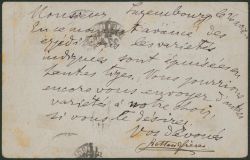 Monsieur Luxembourg le
En ce moment avant des
expéditions les variétés
indiquées sont épuisées en
hautes tiges. Nous pourrions
encore vous envoyer d'autres
variétés à notre choix,
si vous le désirez.
Vos dévoués
Ketten frères